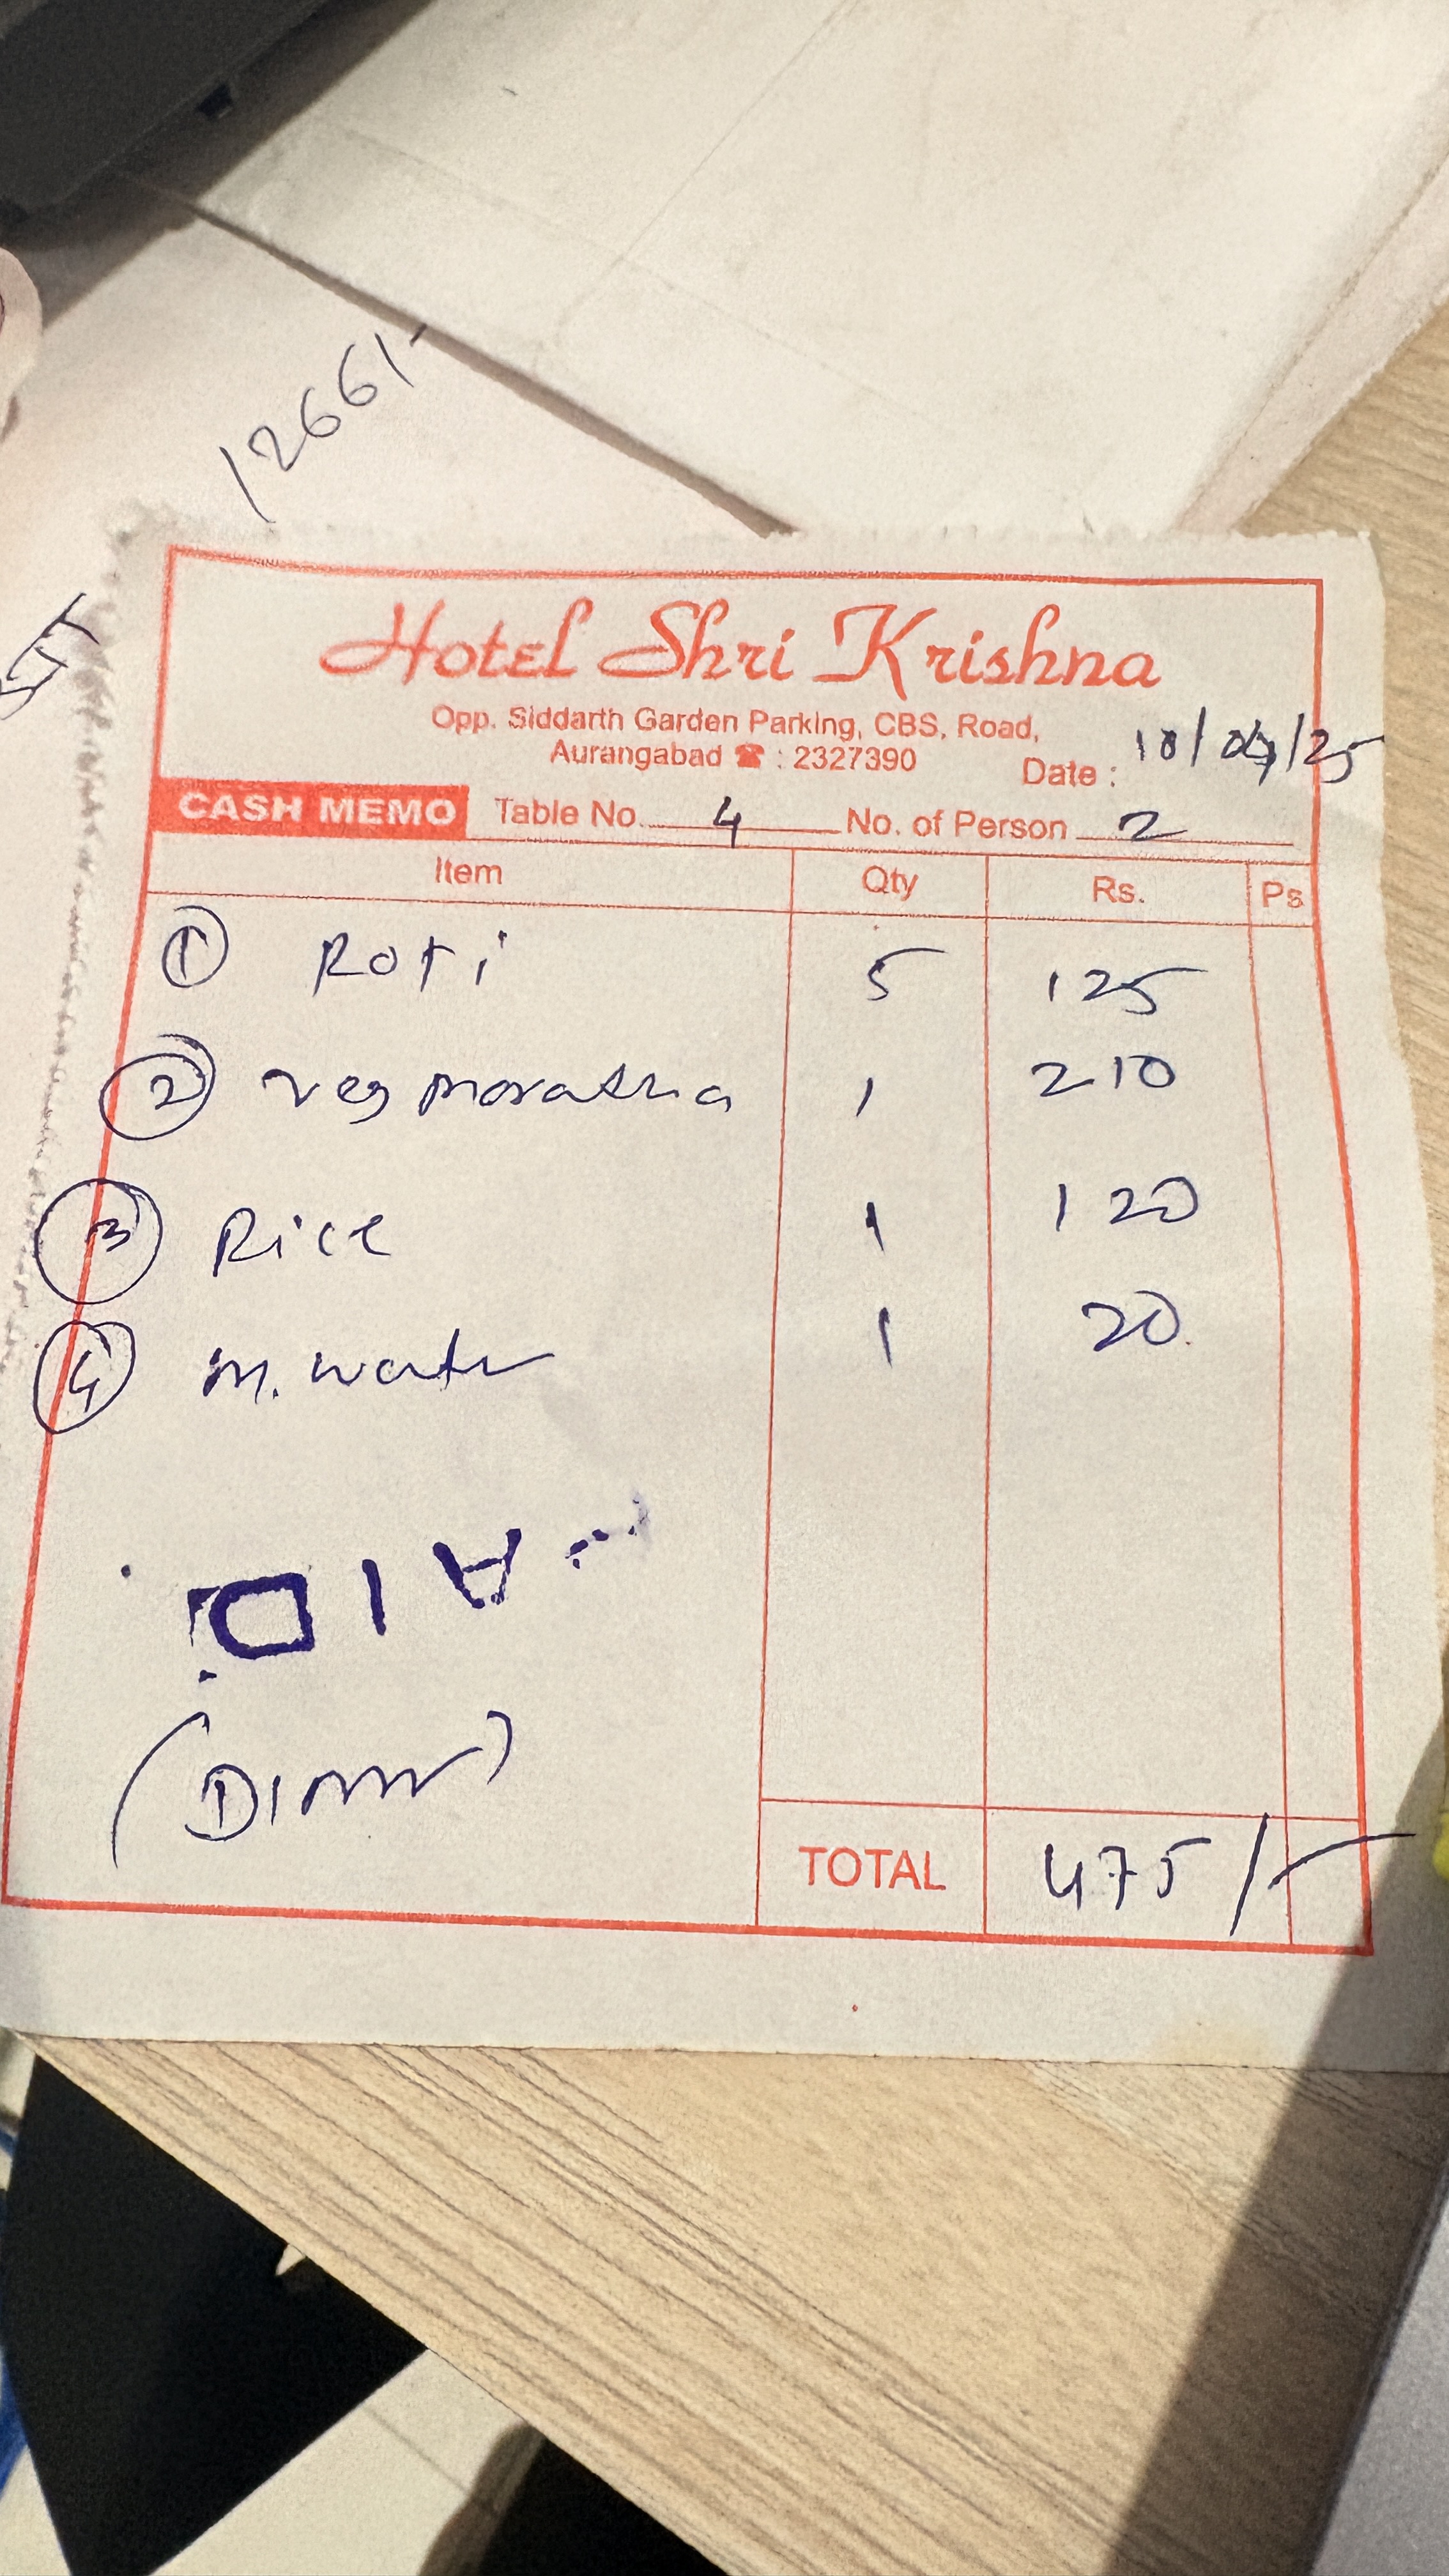 12661-
Hotel Shri Krishna
Opp. Siddarth Garden Parking, CBS, Road,
Aurangabad ☎ : 2327390
Date : 10/ /25
CASH MEMO Table No. 4 No. of Person 2
Item Qty Rs. Ps
① Roti 5 125
② veg maratha 1 210
③ Rice 1 120
④ M. water 1 20
PAID
(Dinner)
TOTAL 475/-